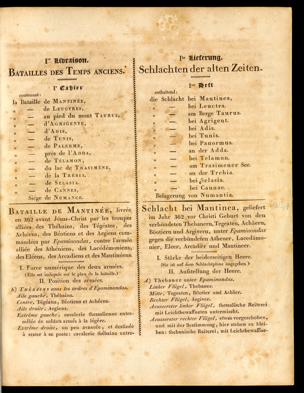 1re Livraison.
BATAILLES DES TEMPS ANCIENS.
1r Cahier
contenant:
la Bataille de MANTINÉE,
— de LEUCTRES,
— au pied du mont TAURUS,
— d'AGRIGENTE,
— d'ADIS,
— de TUNIS,
— de PALERME,
— près de l'ADDA,
— de TÉLAMON,
— du lac de TRASIMÈNE,
— de la TREBIA,
— de SELASIE,
— de CANNES,
Siège de NUMANCE.
BATAILLE DE MANTINÉE, livrée
en 362 avant Jésus-Christ par les troupes
alliées des Thébains, des Tégéates, des
Achéens, des Béotiens et des Argiens com-
mandées par Epaminondas, contre l'armée
alliée des Athéniens, des Lacédémoniens,
des Eléens, des Arcadiens et des Mantinéens.
I. Force numérique des deux armées.
(Elle est indiquée sur le plan de la bataille.)
II. Position des armées.
A) Thébains sous les ordres d'Epaminondas.
Aile gauche, Thébains.
Centre, Tégéates, Béotiens et Achéens.
Aile droite, Argiens.
Extrême gauche, cavalerie thessalienne entre-
mêlée de soldats armés à la légère.
Extrême droite, un peu avancée, et destinée
à rester à ce poste: cavalerie thébaine entre-
1te Lieferung.
Schlachten der alten Zeiten.
1tes Heft
enthaltend:
die Schlacht bei Mantinea,
— bei Leuctra,
— am Berge Taurus,
— bei Agrigent,
— bei Adis,
— bei Tunis,
— bei Panormus,
— an der Adda,
— bei Telamon,
— am Trasimener See,
— an der Trebia,
— bei Selasia,
— bei Cannae,
Belagerung von Numantia.
Schlacht bei Mantinea, geliefert
im Jahr 362 vor Christi Geburt von den
verbündeten Thebanern, Tegeaten, Achäern,
Böotiern und Argivern, unter Epaminondas
gegen die verbündeten Athener, Lacedämo-
nier, Eleer, Arcadier und Mantineer.
I. Stärke der beiderseitigen Heere.
(Sie ist auf dem Schlachtplane angegeben.)
II. Aufstellung der Heere.
A) Thebaner unter Epaminondas.
Linker Flügel, Thebaner.
Mitte, Tegeaten, Böotier und Achäer.
Rechter Flügel, Argiver.
Aeusserster linker Flügel, thessalische Reiterei
mit Leichtbewaffneten untermischt.
Aeusserster rechter Flügel, etwas vorgeschoben,
und mit der Bestimmung, hier stehen zu blei-
ben: thebanische Reiterei, mit Leichtbewaffne-